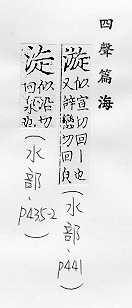 四聲篇海
漩 似宣切回丨也
又辝戀切回泉
(水部、p441)
淀 似沿切
回泉也
(水部、p435-2)